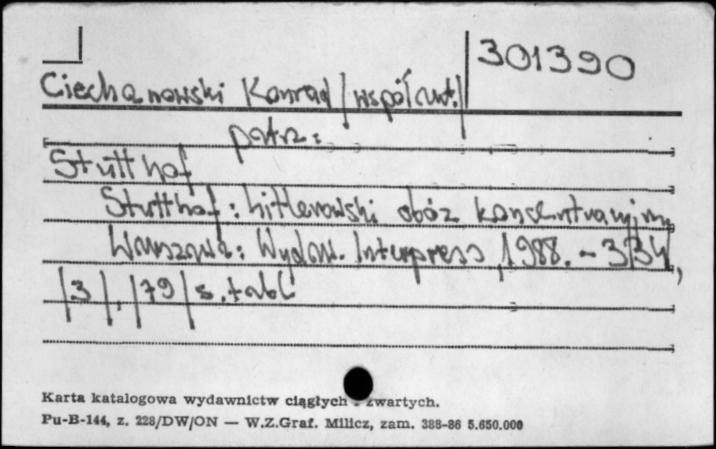 301390
Ciechanowski Konrad /współaut./
patrz:
Stutthof
Stutthof: hitlerowski obóz koncentracyjny
Warszawa: Wydaw. Interpress, 1988. - 334,
/3/, /79/ s. tabl
Karta katalogowa wydawnictw ciągłych i zwartych.
Pu-B-144, z. 228/DW/ON — W.Z.Graf. Milicz, zam. 388-86 5.650.000